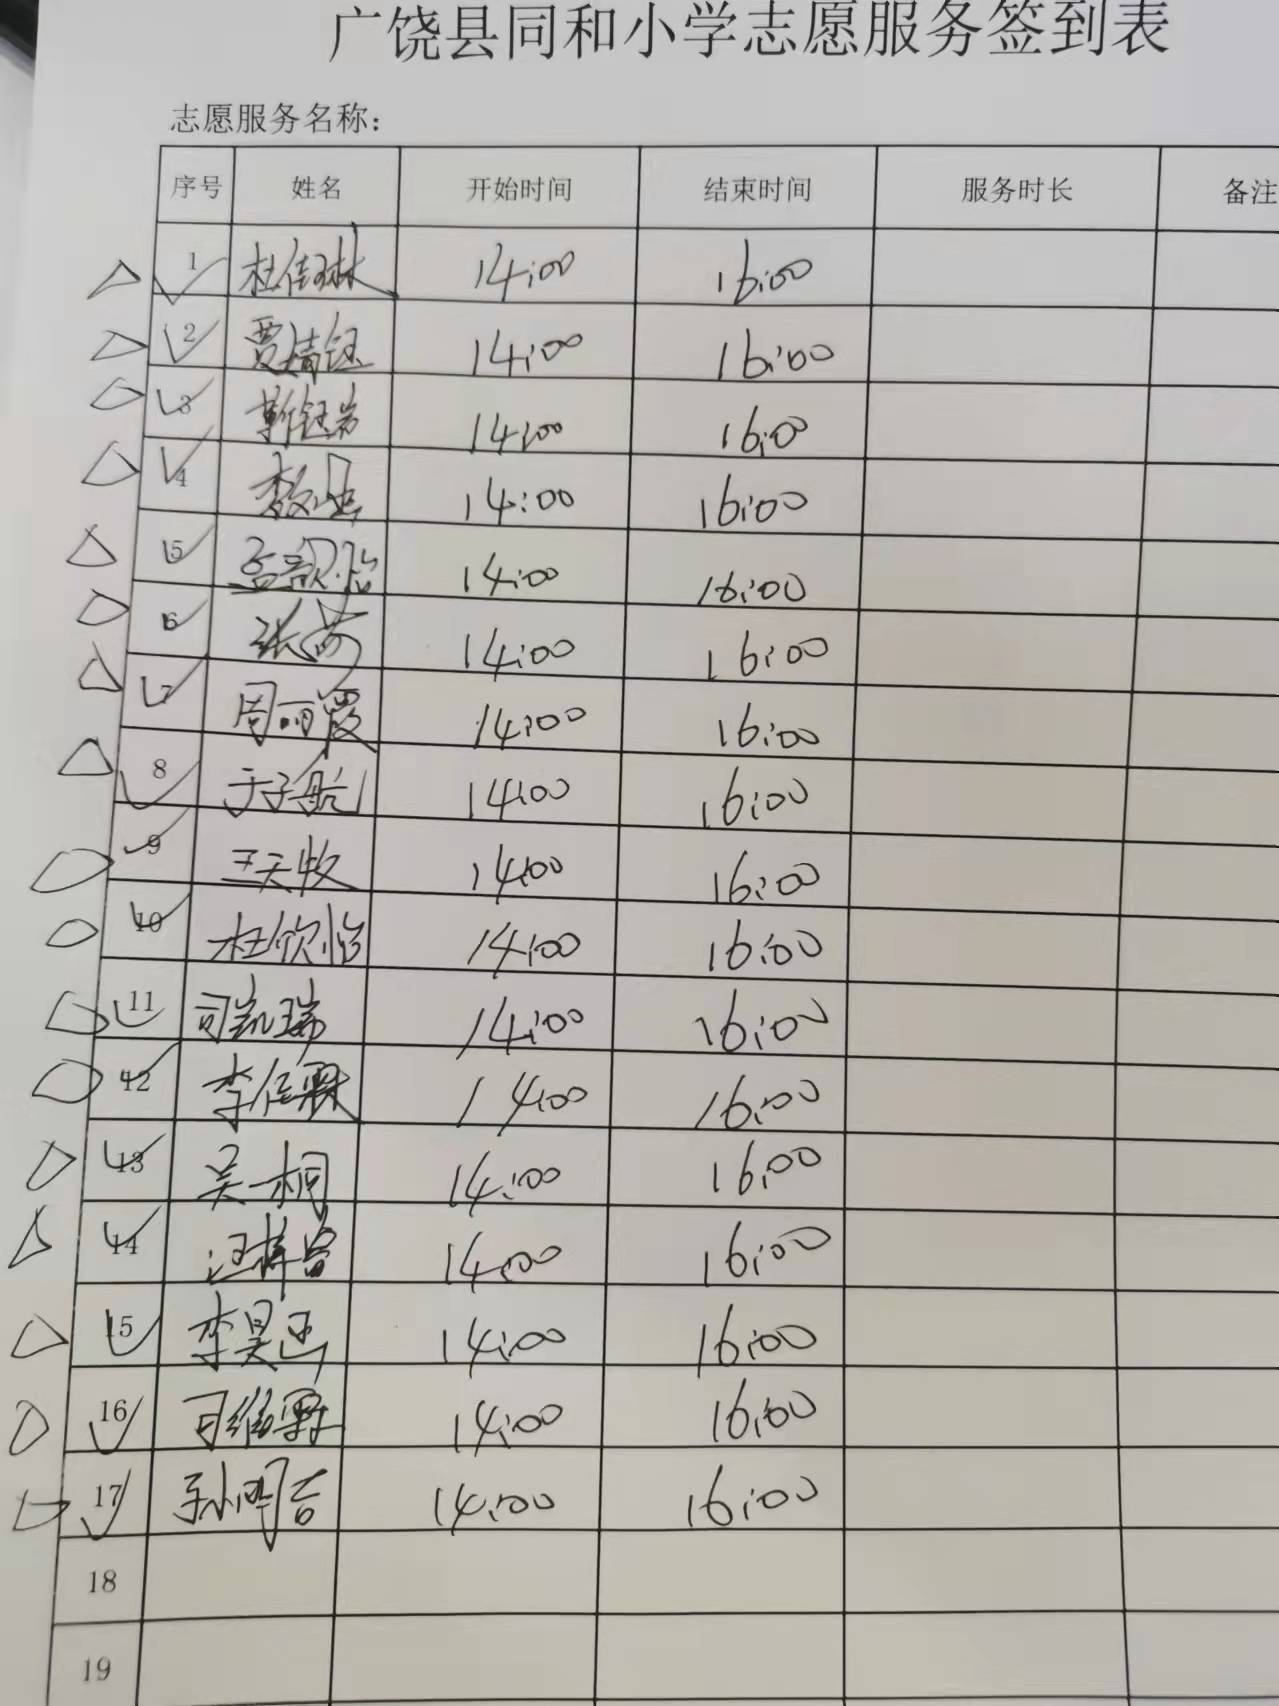 广饶县同和小学志愿服务签到表
志愿服务名称：
序号 姓名 开始时间 结束时间 服务时长 备注
1 杜佳琳 14:00 16:00
2 贾婧钰 14:00 16:00
3 靳钰岩 14:00 16:00
4 14:00 16:00
5 孟歆怡 14:00 16:00
6 张 14:00 16:00
7 周丽霞 14:00 16:00
8 于子航 14:00 16:00
9 王天牧 14:00 16:00
10 杜欣怡 14:00 16:00
11 司凯瑞 14:00 16:00
12 李佳霖 14:00 16:00
13 吴桐 14:00 16:00
14 汪梓 14:00 16:00
15 李昊 14:00 16:00
16 司维 14:00 16:00
17 孙明吉 14:00 16:00
18
19